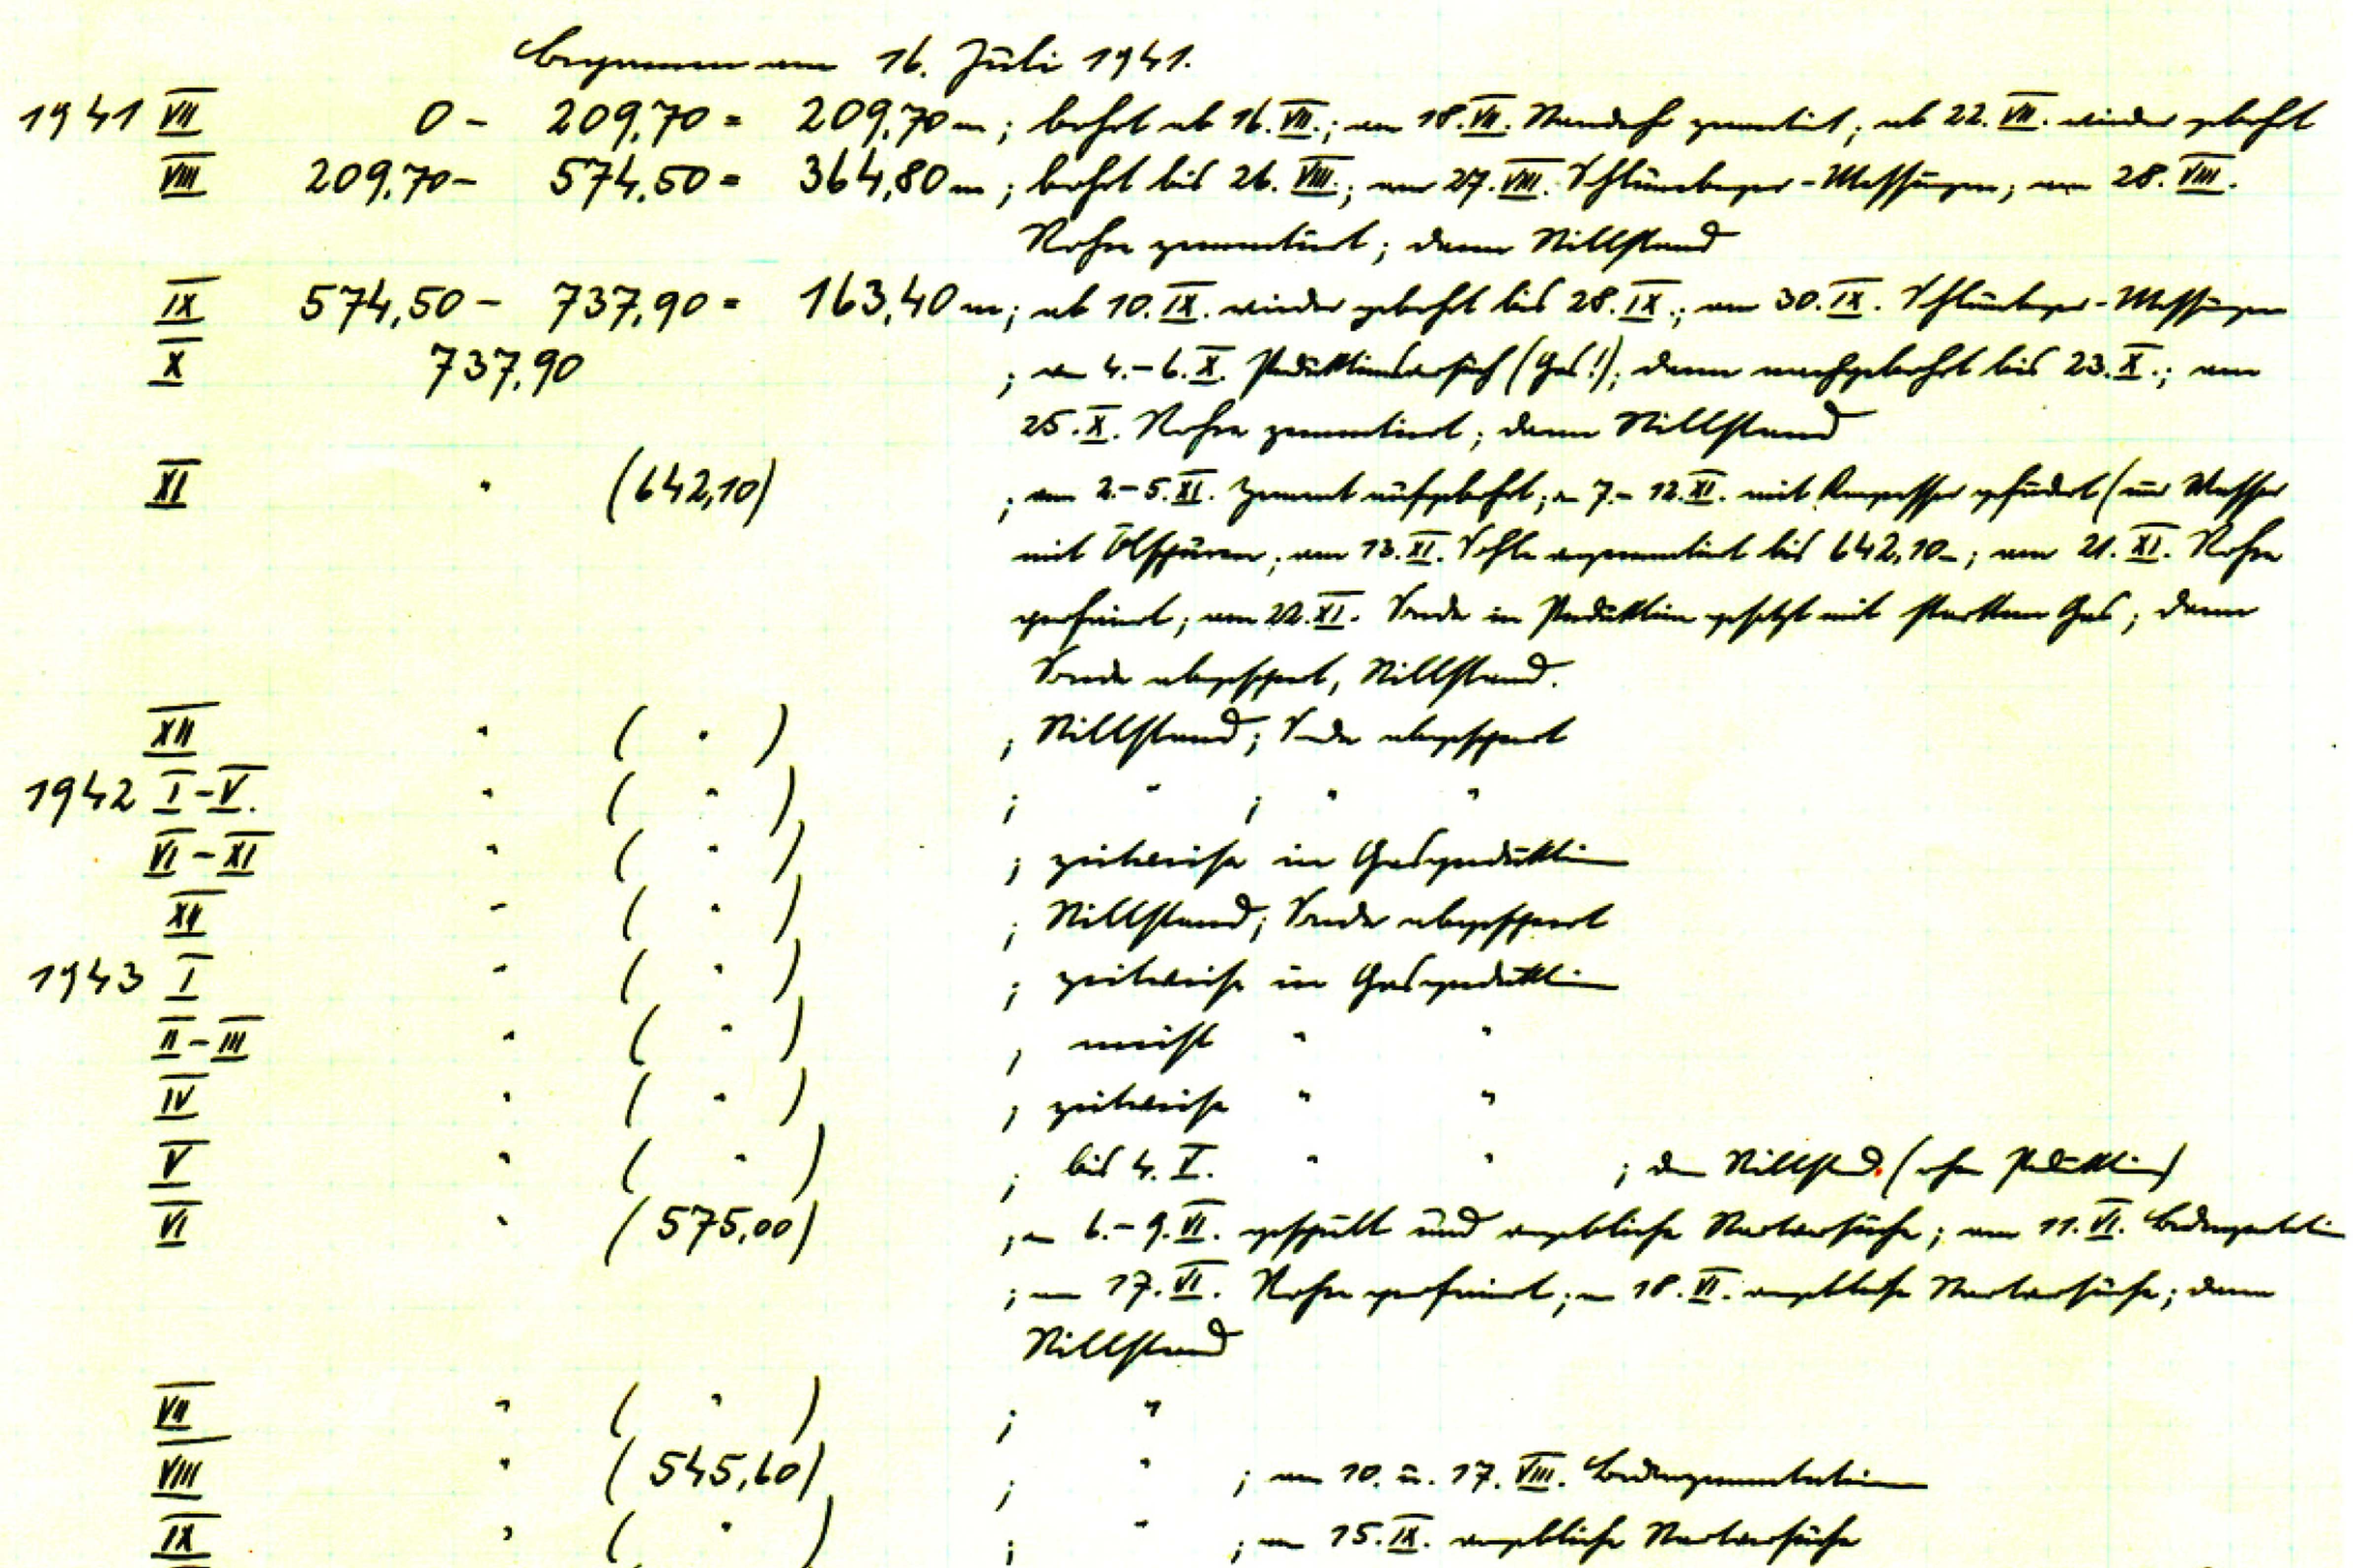 Begonnen am 16. Juli 1941.
1941 VII 0 - 209,70 = 209,70 m; bohrt ab 16. VII.; am 18. VII. Standrohr zementiert; ab 22. VII. wieder gebohrt
VIII 209,70 - 574,50 = 364,80 m; bohrt bis 26. VIII.; am 27. VIII. Schlumberger-Messungen; am 28. VIII.
Rohre zementiert; dann Stillstand
IX 574,50 - 737,90 = 163,40 m; ab 10. IX. wieder gebohrt bis 28. IX.; am 30. IX. Schlumberger-Messungen
X 737,90 ; am 4.-6. X. Produktionsversuch (Gas!); dann nachgebohrt bis 23. X.; am
25. X. Rohre zementiert; dann Stillstand
XI " (642,10) ; am 2.-5. XI. Zement aufgebohrt; am 7.-12. XI. mit Kompressor gefördert (nur Wasser
mit Ölspuren; am 13. XI. Sohle zementiert bis 642,10 m; am 21. XI. Rohre
perforiert; am 22. XI. Sonde in Produktion gesetzt mit starkem Gas; dann
Sonde abgesperrt, Stillstand.
XII " ( " ) ; Stillstand; Sonde abgesperrt
1942 I-V. " ( " ) ; " ; " "
VI-XI " ( " ) ; zeitweise in Gasproduktion
XII " ( " ) ; Stillstand; Sonde abgesperrt
1943 I " ( " ) ; zeitweise in Gasproduktion
II-III " ( " ) ; meist " "
IV " ( " ) ; zeitweise " "
V " ( " ) ; bis 4. V. " " ; dann Stillstand. (ohne Produktion)
VI " (575,00) ; am 6.-9. VI. gespült und vergebliche Startversuche; am 11. VI.
; am 17. VI. Rohre perforiert; am 18. VI. vergebliche Startversuche; dann
Stillstand
VII " ( " ) ; "
VIII " (545,60) ; " ; am 10. u. 17. VIII. Bodenzementation
IX " ( " ) ; " ; am 15. IX. vergebliche Startversuche